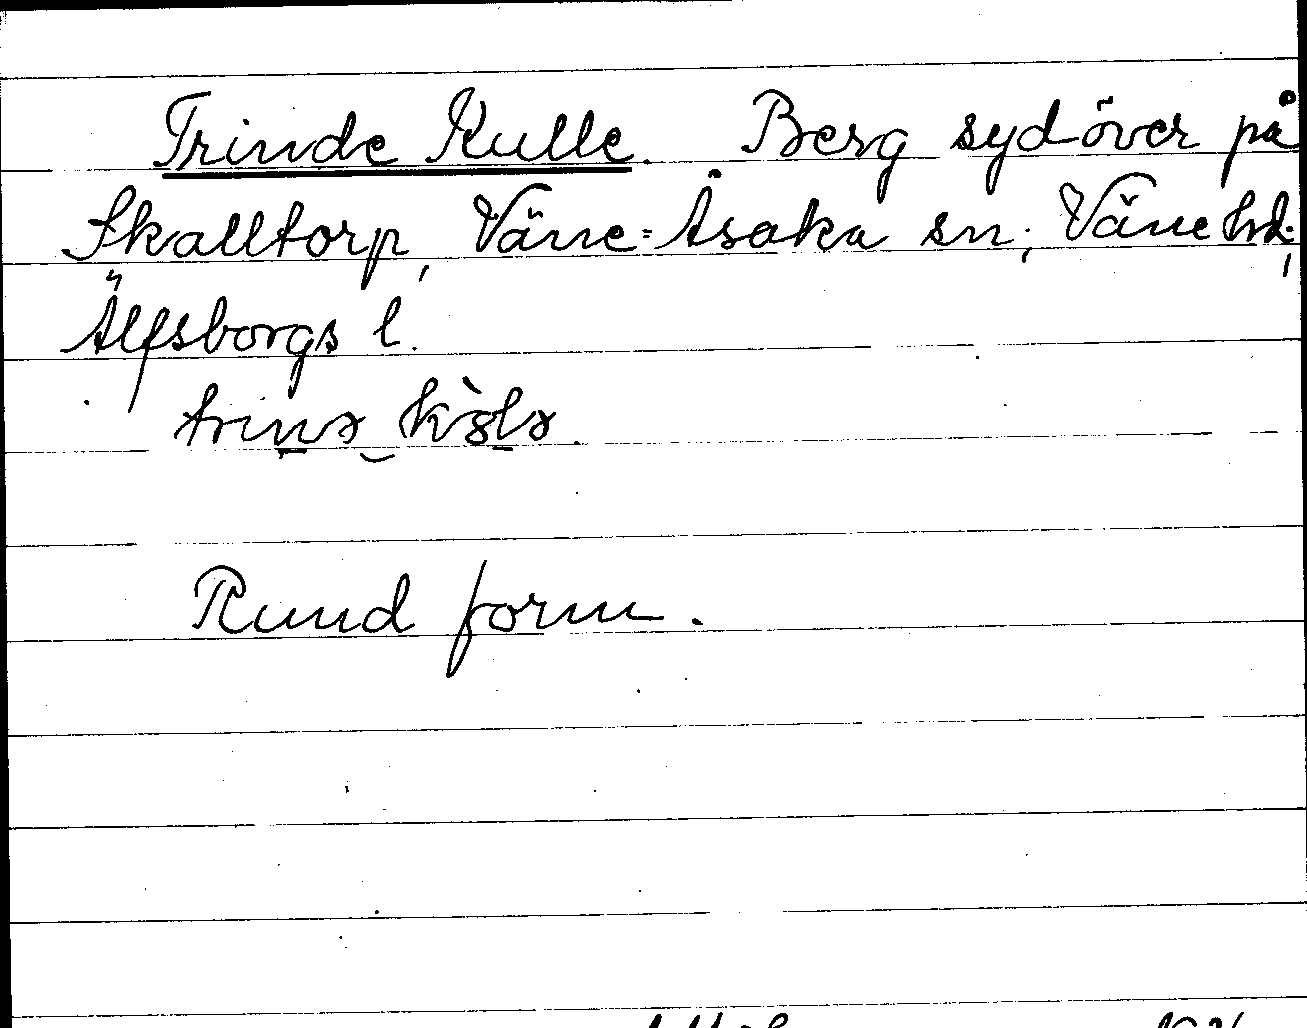 Trinde Kulle. Berg sydöver på
Skalltorp, Väne-Åsaka sn; Väne hd;
Älfsborgs l.
Rund form.